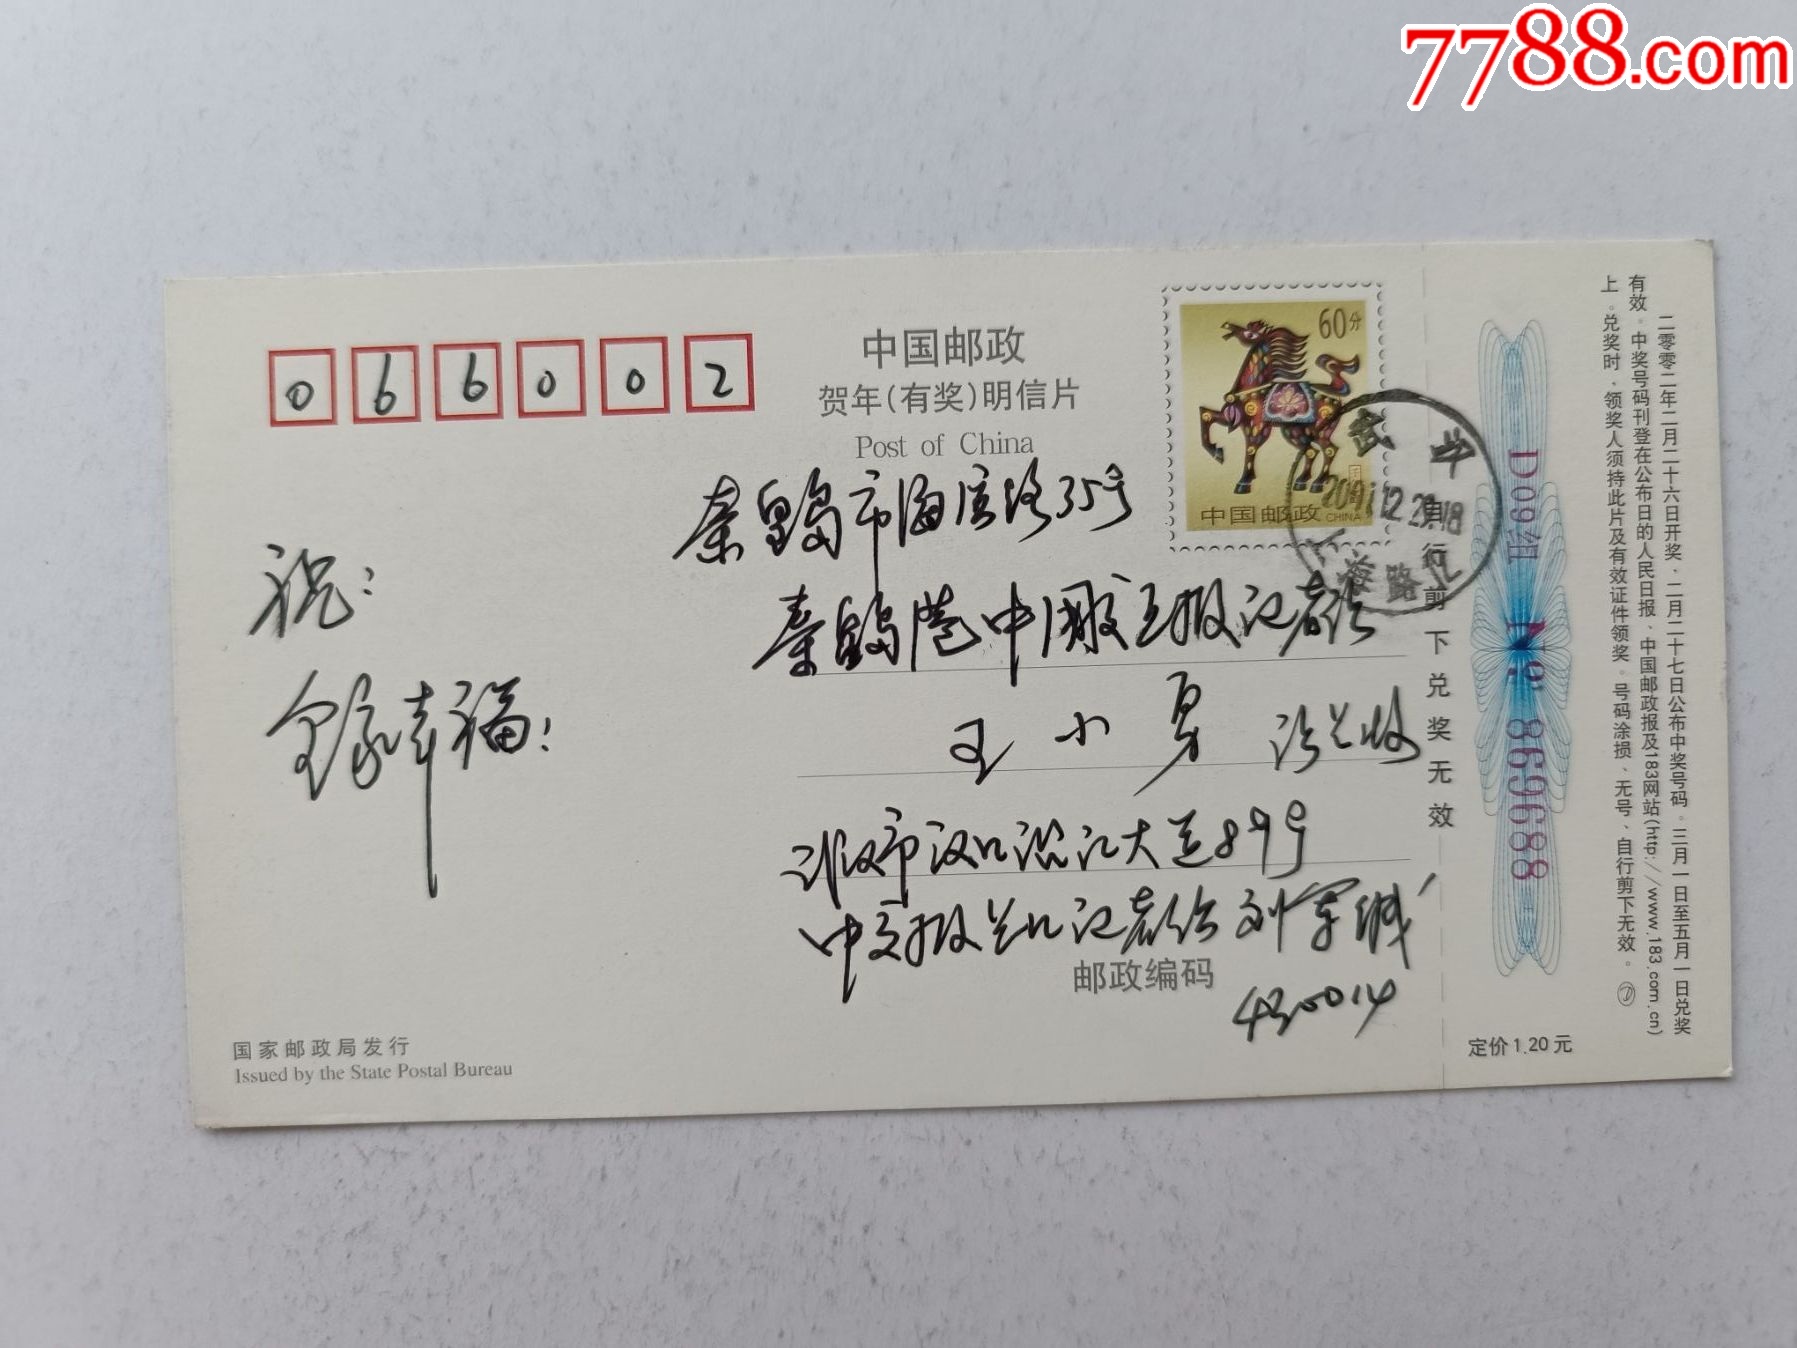 7788.com
066002
中国邮政
贺年(有奖)明信片
Post of China
60分
中国邮政 CHINA
秦皇岛市海滨路35号
秦皇岛港中国交通报记者站
王小勇 站长收
武汉市汉口沿江大道89号
中交报长江记者站 刘军城
430014
邮政编码
祝:
全家幸福!
国家邮政局发行
Issued by the State Postal Bureau
2001.12.29.18
自行剪下兑奖无效
D09组 №869688
定价1.20元
二零零二年二月二十六日开奖。二月二十七日公布中奖号码。三月一日至五月一日兑奖
有效。中奖号码刊登在公布日的人民日报、中国邮政报及183网站(http://www.183.com.cn)
上。兑奖时,领奖人须持此片及有效证件领奖。号码涂损、无号、自行剪下无效。